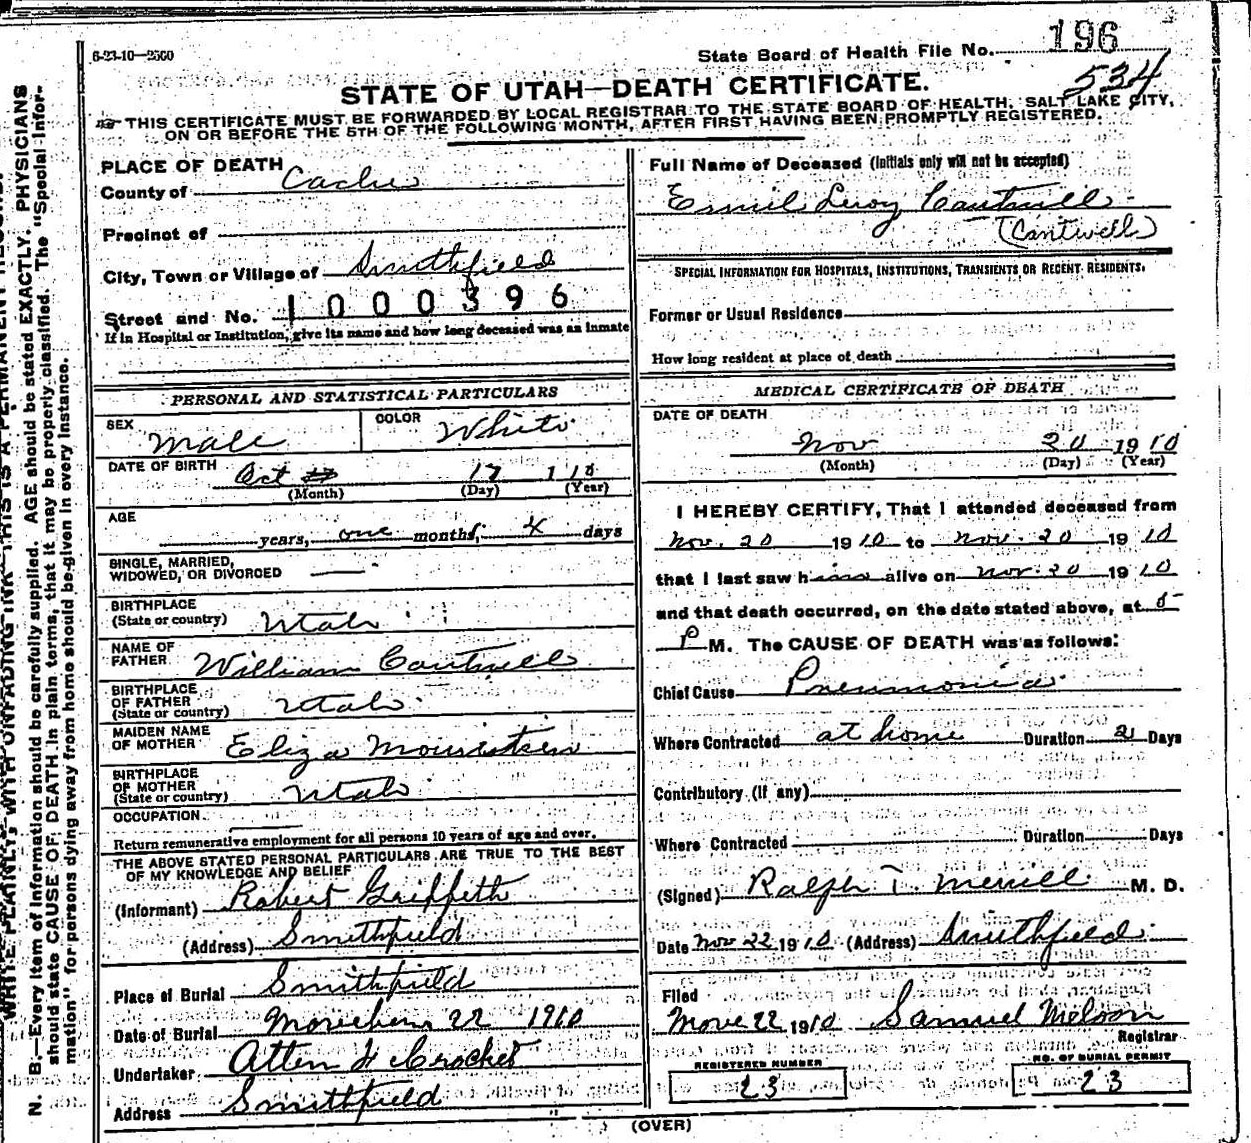 6-23-10—2500
State Board of Health File No. 196
534
STATE OF UTAH—DEATH CERTIFICATE.
THIS CERTIFICATE MUST BE FORWARDED BY LOCAL REGISTRAR TO THE STATE BOARD OF HEALTH, SALT LAKE CITY,
ON OR BEFORE THE 5TH OF THE FOLLOWING MONTH, AFTER FIRST HAVING BEEN PROMPTLY REGISTERED.
PLACE OF DEATH
County of Cache
Precinct of
City, Town or Village of Smithfield
Street and No. 1000396
If in Hospital or Institution, give its name and how long deceased was an inmate
Full Name of Deceased (Initials only will not be accepted)
Emil Leroy Cantwell
(Cantwell)
SPECIAL INFORMATION FOR HOSPITALS, INSTITUTIONS, TRANSIENTS OR RECENT RESIDENTS.
Former or Usual Residence
How long resident at place of death
PERSONAL AND STATISTICAL PARTICULARS
SEX Male COLOR White
DATE OF BIRTH Oct 17 1 10
(Month) (Day) (Year)
AGE
years, one months, 4 days
SINGLE, MARRIED,
WIDOWED, OR DIVORCED
BIRTHPLACE
(State or country) Utah
NAME OF
FATHER William Cantwell
BIRTHPLACE
OF FATHER
(State or country) Utah
MAIDEN NAME
OF MOTHER Eliza Mouritsen
BIRTHPLACE
OF MOTHER
(State or country) Utah
OCCUPATION
Return remunerative employment for all persons 10 years of age and over.
THE ABOVE STATED PERSONAL PARTICULARS ARE TRUE TO THE BEST
OF MY KNOWLEDGE AND BELIEF
(Informant) Robert Griffeth
(Address) Smithfield
Place of Burial Smithfield
Date of Burial 22 1910
Undertaker Crocket
Address Smithfield
MEDICAL CERTIFICATE OF DEATH
DATE OF DEATH
Nov 20 1910
(Month) (Day) (Year)
I HEREBY CERTIFY, That I attended deceased from
Nov. 20 1910 to Nov. 20 1910
that I last saw him alive on Nov. 20 1910
and that death occurred, on the date stated above, at 5
P M. The CAUSE OF DEATH was as follows:
Chief Cause Pneumonia
Where Contracted at home Duration 2 Days
Contributory (If any)
Where Contracted Duration Days
(Signed) Ralph T. Merrill M. D.
Date Nov 22 1910 (Address) Smithfield
Filed
Nove 22 1910 Samuel Nelson
Registrar
REGISTERED NUMBER
23
NO. OF BURIAL PERMIT
23
(OVER)
WRITE PLAINLY, WITH UNFADING INK—THIS IS A PERMANENT RECORD.
N. B.—Every item of information should be carefully supplied. AGE should be stated EXACTLY. PHYSICIANS
should state CAUSE OF DEATH in plain terms, that it may be properly classified. The "Special Infor-
mation" for persons dying away from home should be given in every instance.